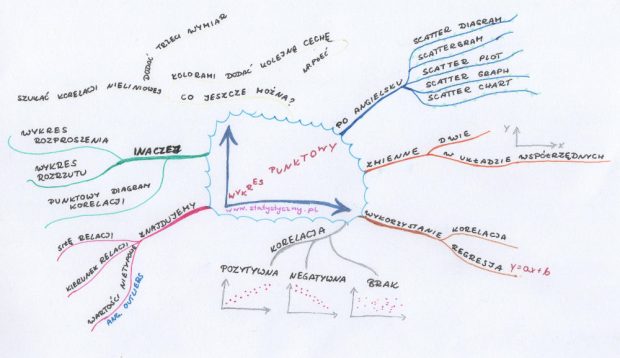 WYKRES PUNKTOWY
www.statystyczny.pl
PO ANGIELSKU
SCATTER DIAGRAM
SCATTERGRAM
SCATTER PLOT
SCATTER GRAPH
SCATTER CHART
ZMIENNE
DWIE
W UKŁADZIE WSPÓŁRZĘDNYCH
Y
X
WYKORZYSTANIE
KORELACJA
REGRESJA
y=ax+b
KORELACJA
POZYTYWNA
NEGATYWNA
BRAK
ZNAJDUJEMY
SIŁĘ RELACJI
KIERUNEK RELACJI
WARTOŚCI NIETYPOWE
ANG. OUTLIERS
INACZEJ
WYKRES
ROZPROSZENIA
WYKRES
ROZRZUTU
PUNKTOWY DIAGRAM
KORELACJI
CO JESZCZE MOŻNA?
SZUKAĆ KORELACJI NIELINIOWEJ
DODAĆ
TRZECI WYMIAR
KOLORAMI DODAĆ KOLEJNĄ CECHĘ
NP. PŁEĆ